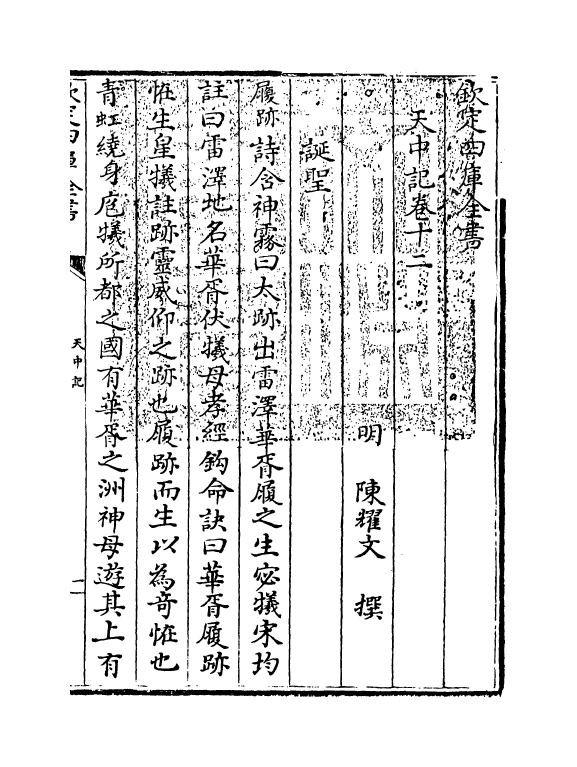 欽定四庫全書
天中記卷十二
明 陳耀文 撰
誕聖
履跡詩含神霧曰大跡出雷澤華胥履之生宓犧宋均
註曰雷澤地名華胥伏犧母孝經鈎命訣曰華胥履跡
恠生皇犧註跡靈威仰之跡也履跡而生以為奇恠也
青虹繞身庖犧所都之國有華胥之洲神母遊其上有
欽定四庫全書
天中記